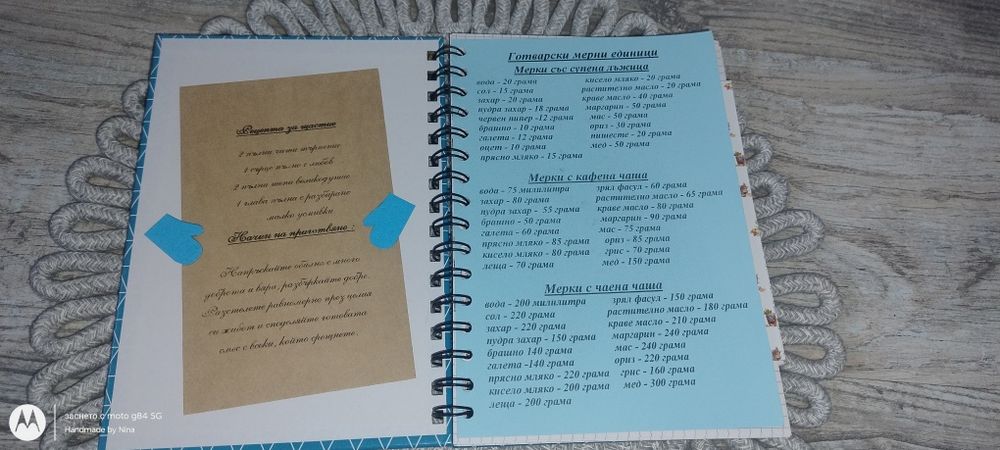 Рецепта за щастие
2 пълни чаши търпение
1 сърце пълно с любов
2 пълни шепи великодушие
1 глава пълна с разбиране
малко усмивки
Начин на приготвяне :
Напръскайте обилно с много
доброта и вяра, разбъркайте добре.
Разстелете равномерно през целия
си живот и споделяйте готовата
смес с всеки, който срещнете.
Готварски мерни единици
Мерки със супена лъжица
вода - 20 грама кисело мляко - 20 грама
сол - 15 грама растително масло - 20 грама
захар - 20 грама краве масло - 40 грама
пудра захар - 18 грама маргарин - 50 грама
червен пипер -12 грама мас - 50 грама
брашно - 10 грама ориз - 30 грама
галета - 12 грама нишесте - 20 грама
оцет - 10 грама мед - 50 грама
прясно мляко - 15 грама
Мерки с кафена чаша
вода - 75 милилитра зрял фасул - 60 грама
захар - 80 грама растително масло - 65 грама
пудра захар - 55 грама краве масло - 80 грама
брашно - 50 грама маргарин - 90 грама
галета - 60 грама мас - 75 грама
прясно мляко - 85 грама ориз - 85 грама
кисело мляко - 80 грама грис - 70 грама
леща - 70 грама мед - 150 грама
Мерки с чаена чаша
вода - 200 милилитра зрял фасул - 150 грама
сол - 220 грама растително масло - 180 грама
захар - 220 грама краве масло - 210 грама
пудра захар - 150 грама маргарин - 240 грама
брашно 140 грама мас - 240 грама
галета -140 грама ориз - 220 грама
прясно мляко - 220 грама грис - 160 грама
кисело мляко - 200 грама мед - 300 грама
леща - 200 грама
заснето с moto g84 5G
Handmade by Nina